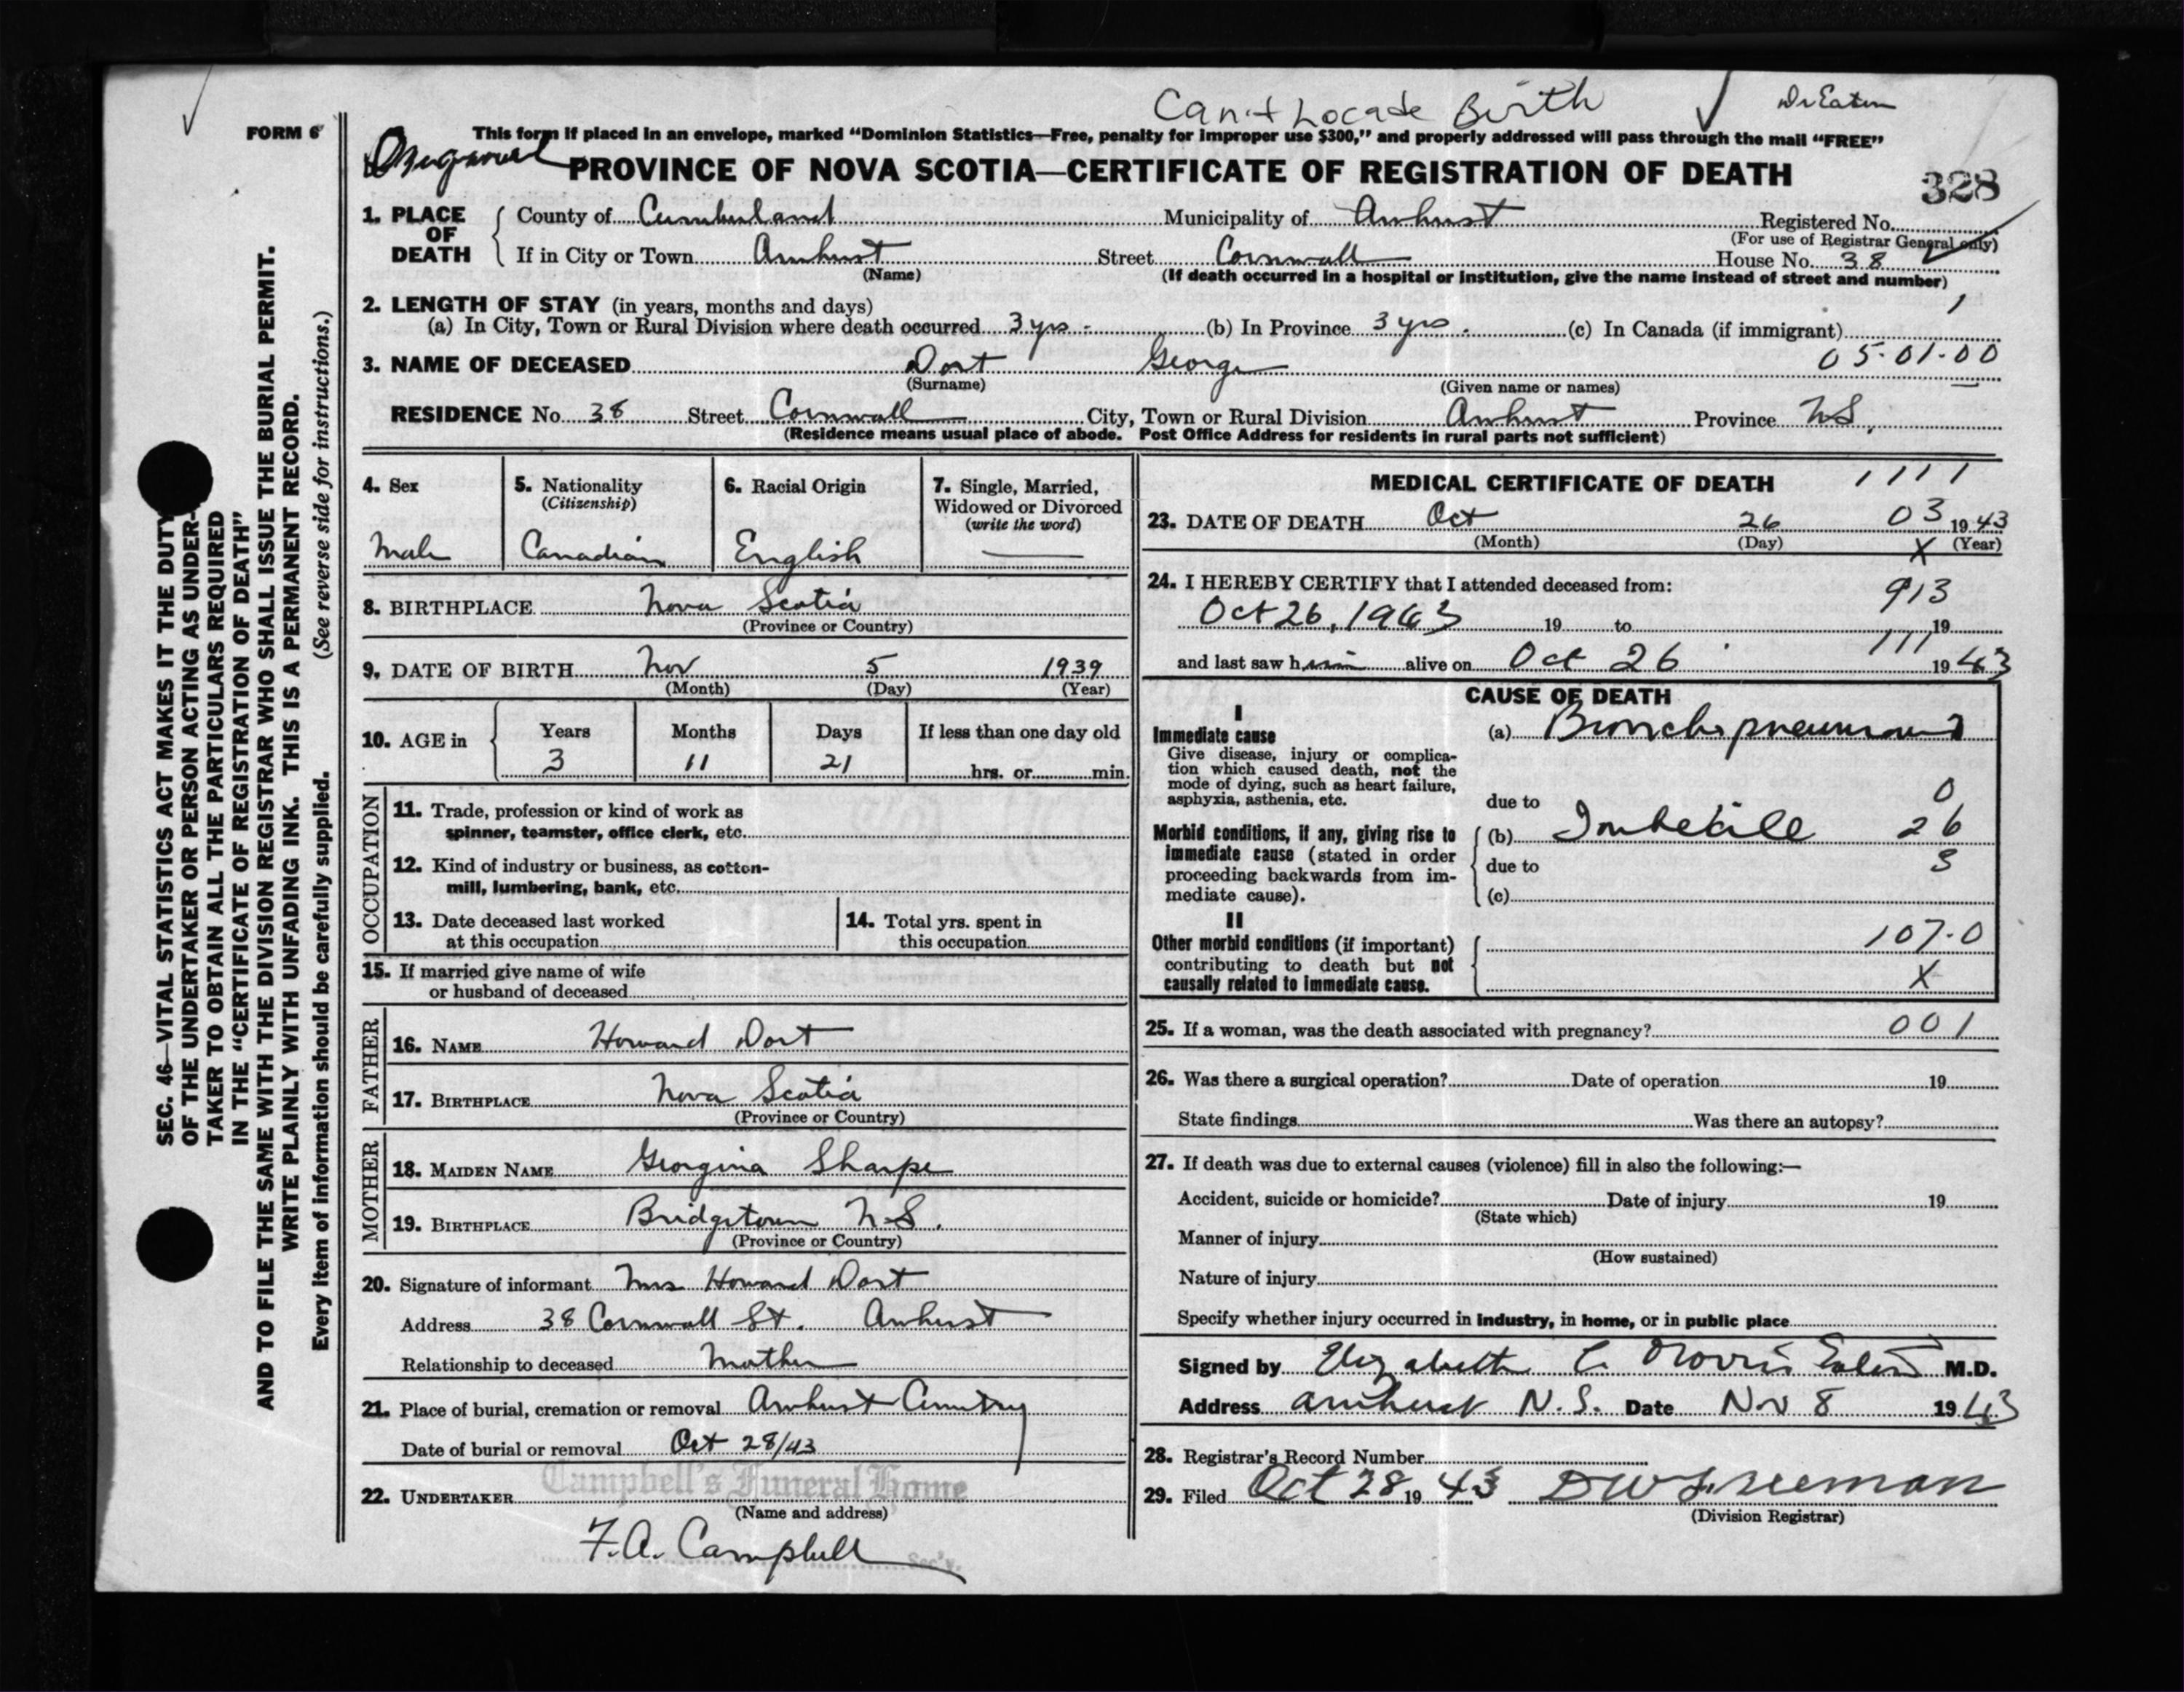 Can't Locate Birth Dr Eaton
FORM 6
This form if placed in an envelope, marked “Dominion Statistics—Free, penalty for improper use $300,” and properly addressed will pass through the mail “FREE”
PROVINCE OF NOVA SCOTIA—CERTIFICATE OF REGISTRATION OF DEATH
328
1. PLACE OF DEATH County of Cumberland Municipality of Amherst Registered No.
(For use of Registrar General only)
If in City or Town Amherst Street Cornwall House No. 38
(Name) (If death occurred in a hospital or institution, give the name instead of street and number)
2. LENGTH OF STAY (in years, months and days) 1
(a) In City, Town or Rural Division where death occurred 3 yrs - (b) In Province 3 yrs. (c) In Canada (if immigrant)
3. NAME OF DECEASED Dort George 05-01-00
(Surname) (Given name or names)
RESIDENCE No. 38 Street Cornwall City, Town or Rural Division Amherst Province N.S.
(Residence means usual place of abode. Post Office Address for residents in rural parts not sufficient)
4. Sex
Male
5. Nationality
(Citizenship)
Canadian
6. Racial Origin
English
7. Single, Married,
Widowed or Divorced
(write the word)
8. BIRTHPLACE Nova Scotia
(Province or Country)
9. DATE OF BIRTH Nov 5 1939
(Month) (Day) (Year)
10. AGE in Years Months Days If less than one day old
3 11 21 hrs. or min.
OCCUPATION
11. Trade, profession or kind of work as
spinner, teamster, office clerk, etc.
12. Kind of industry or business, as cotton-
mill, lumbering, bank, etc.
13. Date deceased last worked
at this occupation
14. Total yrs. spent in
this occupation
15. If married give name of wife
or husband of deceased
FATHER
16. NAME Howard Dort
17. BIRTHPLACE Nova Scotia
(Province or Country)
MOTHER
18. MAIDEN NAME Georgina Sharpe
19. BIRTHPLACE Bridgetown N.S.
(Province or Country)
20. Signature of informant Mrs Howard Dort
Address 38 Cornwall St. Amherst
Relationship to deceased Mother
21. Place of burial, cremation or removal Amherst Cemetry
Date of burial or removal Oct 28/43
22. UNDERTAKER Campbell's Funeral Home
(Name and address)
F.A. Campbell Sec'y.
MEDICAL CERTIFICATE OF DEATH 1111
23. DATE OF DEATH Oct 26 03 1943
(Month) (Day) X (Year)
24. I HEREBY CERTIFY that I attended deceased from: 913
Oct 26, 1943 19 to 19
111
and last saw him alive on Oct 26 1943
CAUSE OF DEATH
I
Immediate cause
Give disease, injury or complica-
tion which caused death, not the
mode of dying, such as heart failure,
asphyxia, asthenia, etc.
(a) Bronchopneumonia
due to 0
Morbid conditions, if any, giving rise to
immediate cause (stated in order
proceeding backwards from im-
mediate cause).
(b) Imbecile 26
due to 3
(c)
II
Other morbid conditions (if important)
contributing to death but not
causally related to immediate cause.
107-0
X
25. If a woman, was the death associated with pregnancy? 001
26. Was there a surgical operation? Date of operation 19
State findings Was there an autopsy?
27. If death was due to external causes (violence) fill in also the following:—
Accident, suicide or homicide? Date of injury 19
(State which)
Manner of injury
(How sustained)
Nature of injury
Specify whether injury occurred in industry, in home, or in public place
Signed by Elizabeth C. Norris Eaton M.D.
Address Amherst N.S. Date Nov 8 1943
28. Registrar's Record Number
29. Filed Oct 28 1943 DW Freeman
(Division Registrar)
SEC. 46—VITAL STATISTICS ACT MAKES IT THE DUTY
OF THE UNDERTAKER OR PERSON ACTING AS UNDER-
TAKER TO OBTAIN ALL THE PARTICULARS REQUIRED
IN THE “CERTIFICATE OF REGISTRATION OF DEATH”
AND TO FILE THE SAME WITH THE DIVISION REGISTRAR WHO SHALL ISSUE THE BURIAL PERMIT.
WRITE PLAINLY WITH UNFADING INK. THIS IS A PERMANENT RECORD.
Every item of information should be carefully supplied. (See reverse side for instructions.)